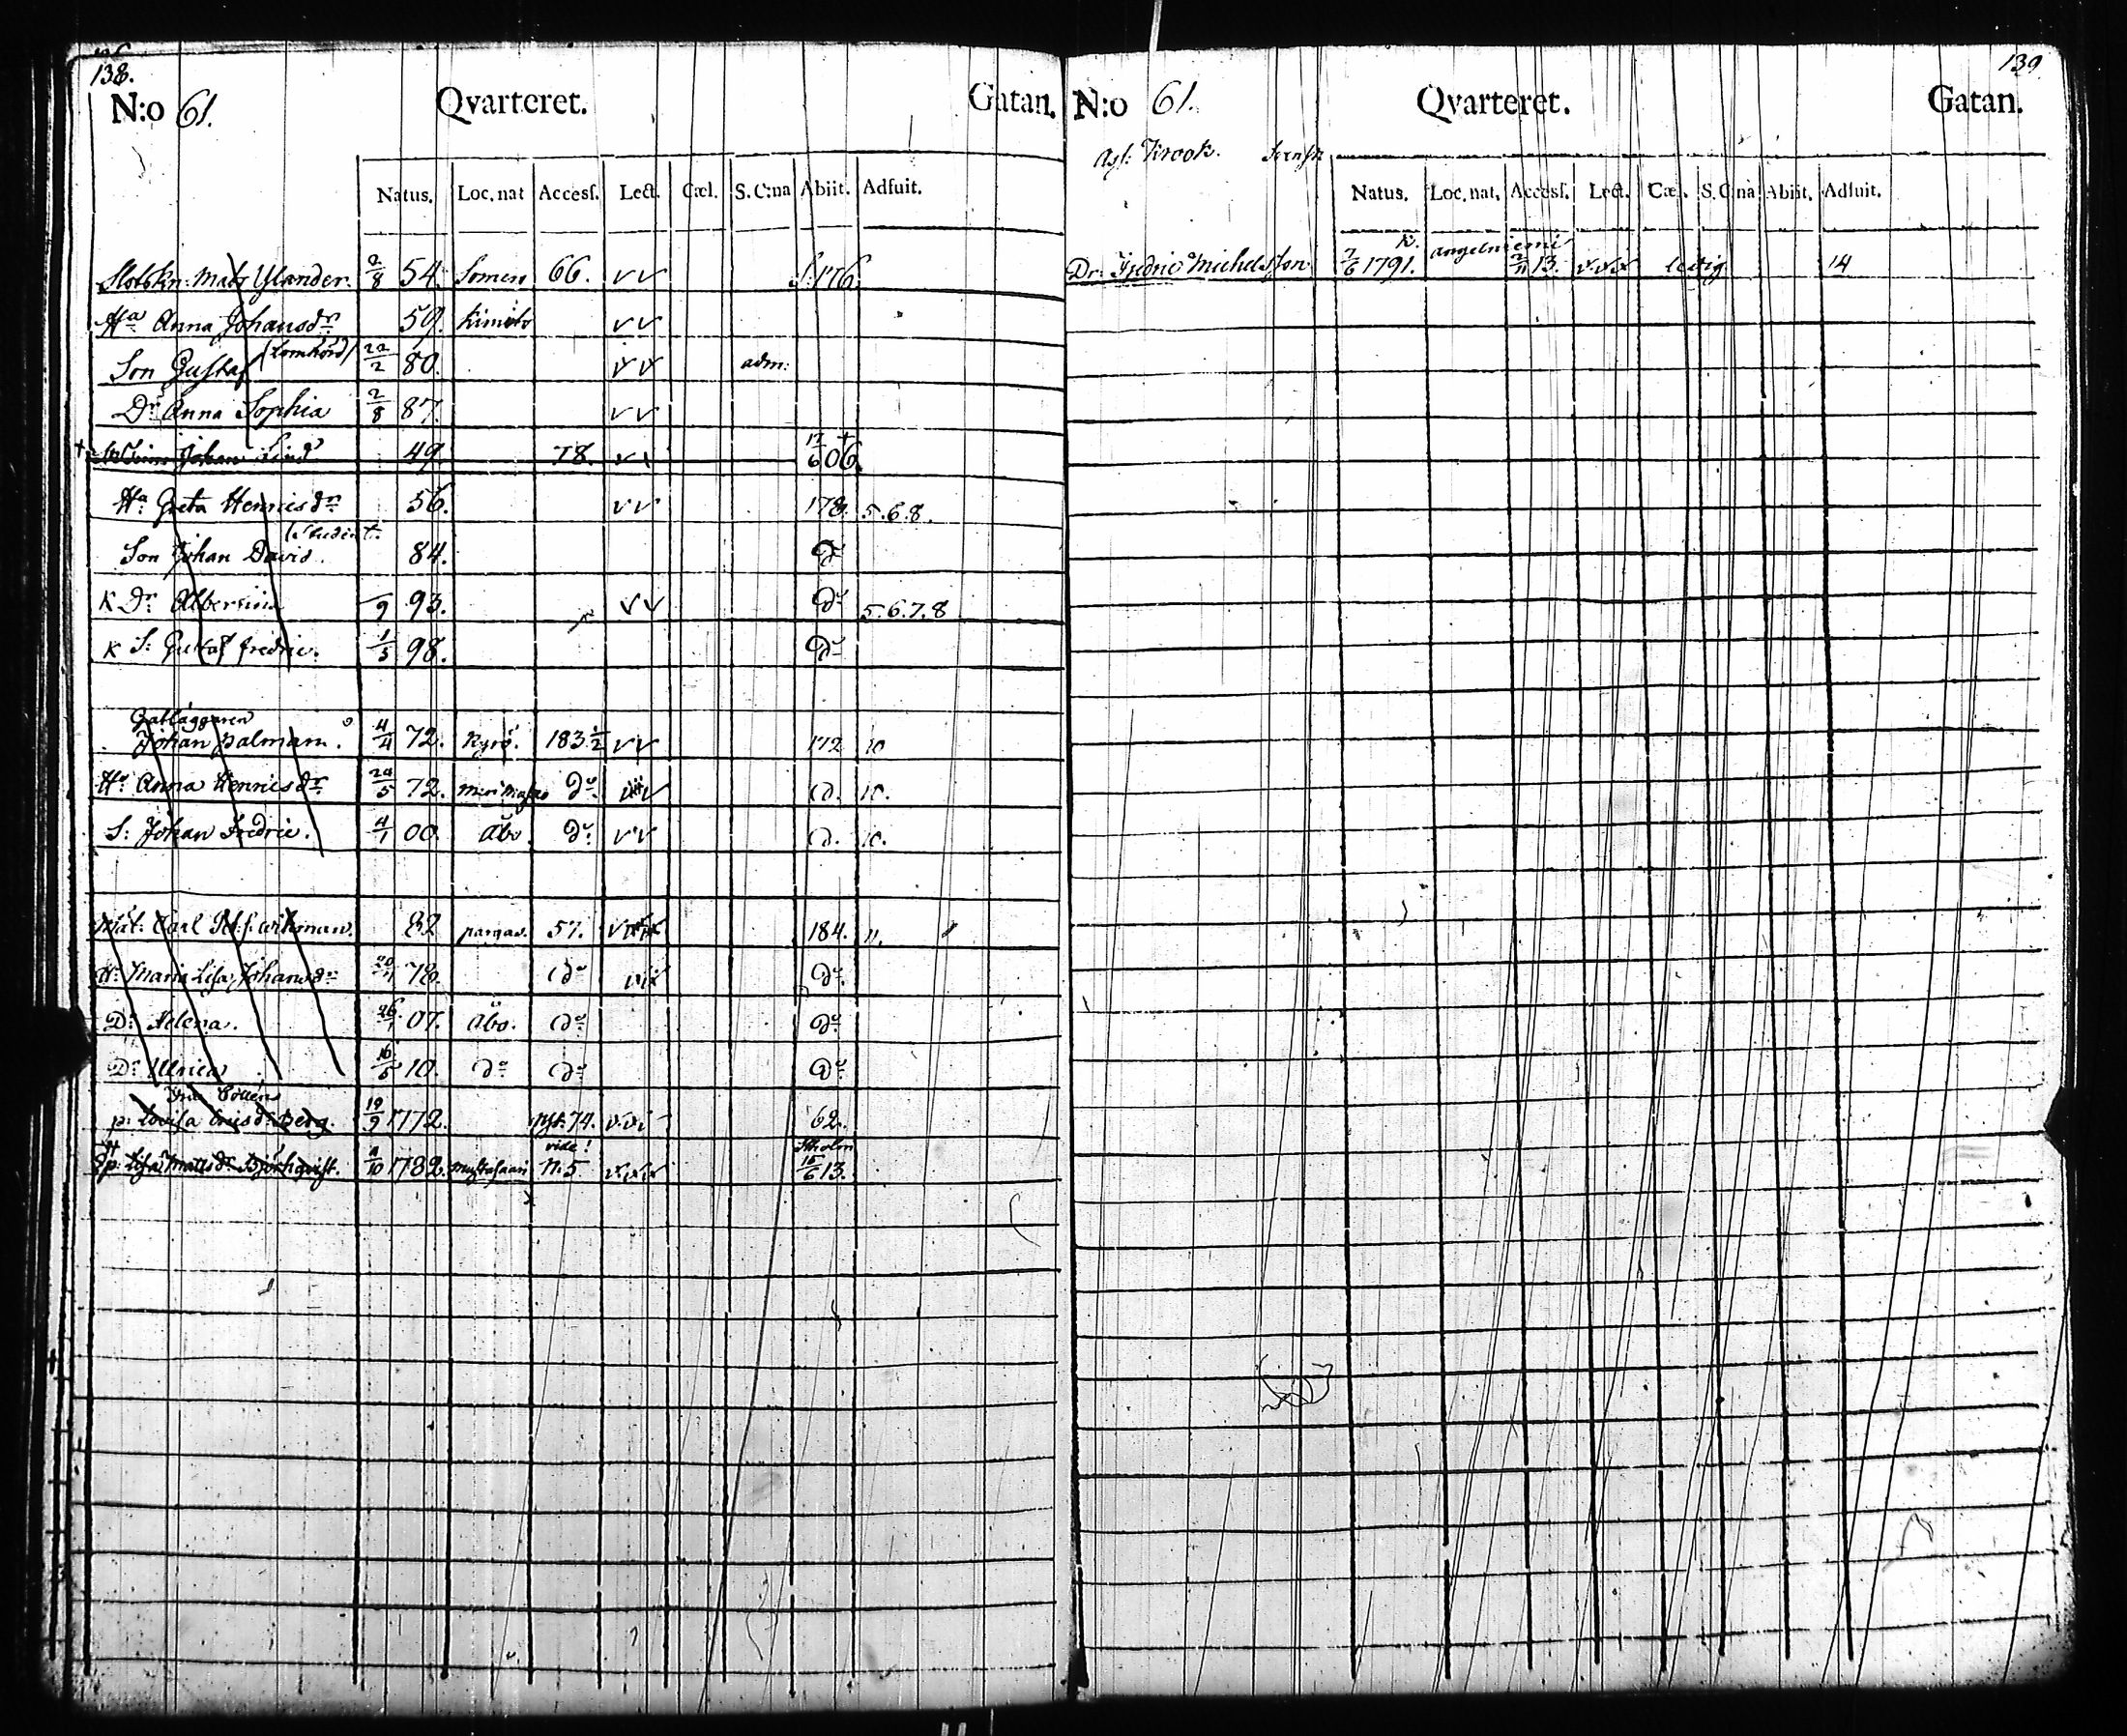 138.
N:o 61. Qvarteret. Gatan.
Natus. Loc. nat Accesſ. Lect. Cæl. S. C:na Abiit. Adfuit.
Matts Ylander. 2/8 54. Somero 66. v v 176.
Ha Anna Johansdr 59. Kimito v v
Son Gustaf (Lomhörd) 22/2 80. v v adm:
Dr Anna Sophia 2/8 87. v v
+ Johan Lind 49. 78. v v 17/6 06. +
Ha Greta Henricsdr 56. v v 178. 5.6.8.
Son Johan David. (Student. 84. do
K Dr Albertina /9 93. v v do 5.6.7.8
K S: Gustaf Fredric. 1/5 98. do
Gatläggaren
Johan Palmam. 4/4 72. Kyro. 183 1/2 v v 172 10
Ha Anna Henricsdr 24/5 72. do d. 10.
S: Johan Fredric. 4/1 00. Åbo do v v d. 10.
Carl 82 pargas. 57. 184. 11.
H: Maria Lisa Johansdr 78. do do
Dr Helena. 26/1 07. Åbo. do do
Dr Ulrica 16/5 10. do do do
p: Lovisa Ericsdr Berg. 19/9 1772. 74. v.v. 62.
p: Lisa Mattsdr Björkqvist. /10 1782. mustasaari vide! N.5 v.v.v Stholm 15/6 13.
139
N:o 61. Qvarteret. Gatan.
Krook.
Natus. Loc. nat. Accesſ. Lect. Cæl. S. C:na Abiit. Adfuit.
Dr: Fredric Michelsson 7/6 1791. K. angelniemi 2/11 13. v.v.v ledig 14